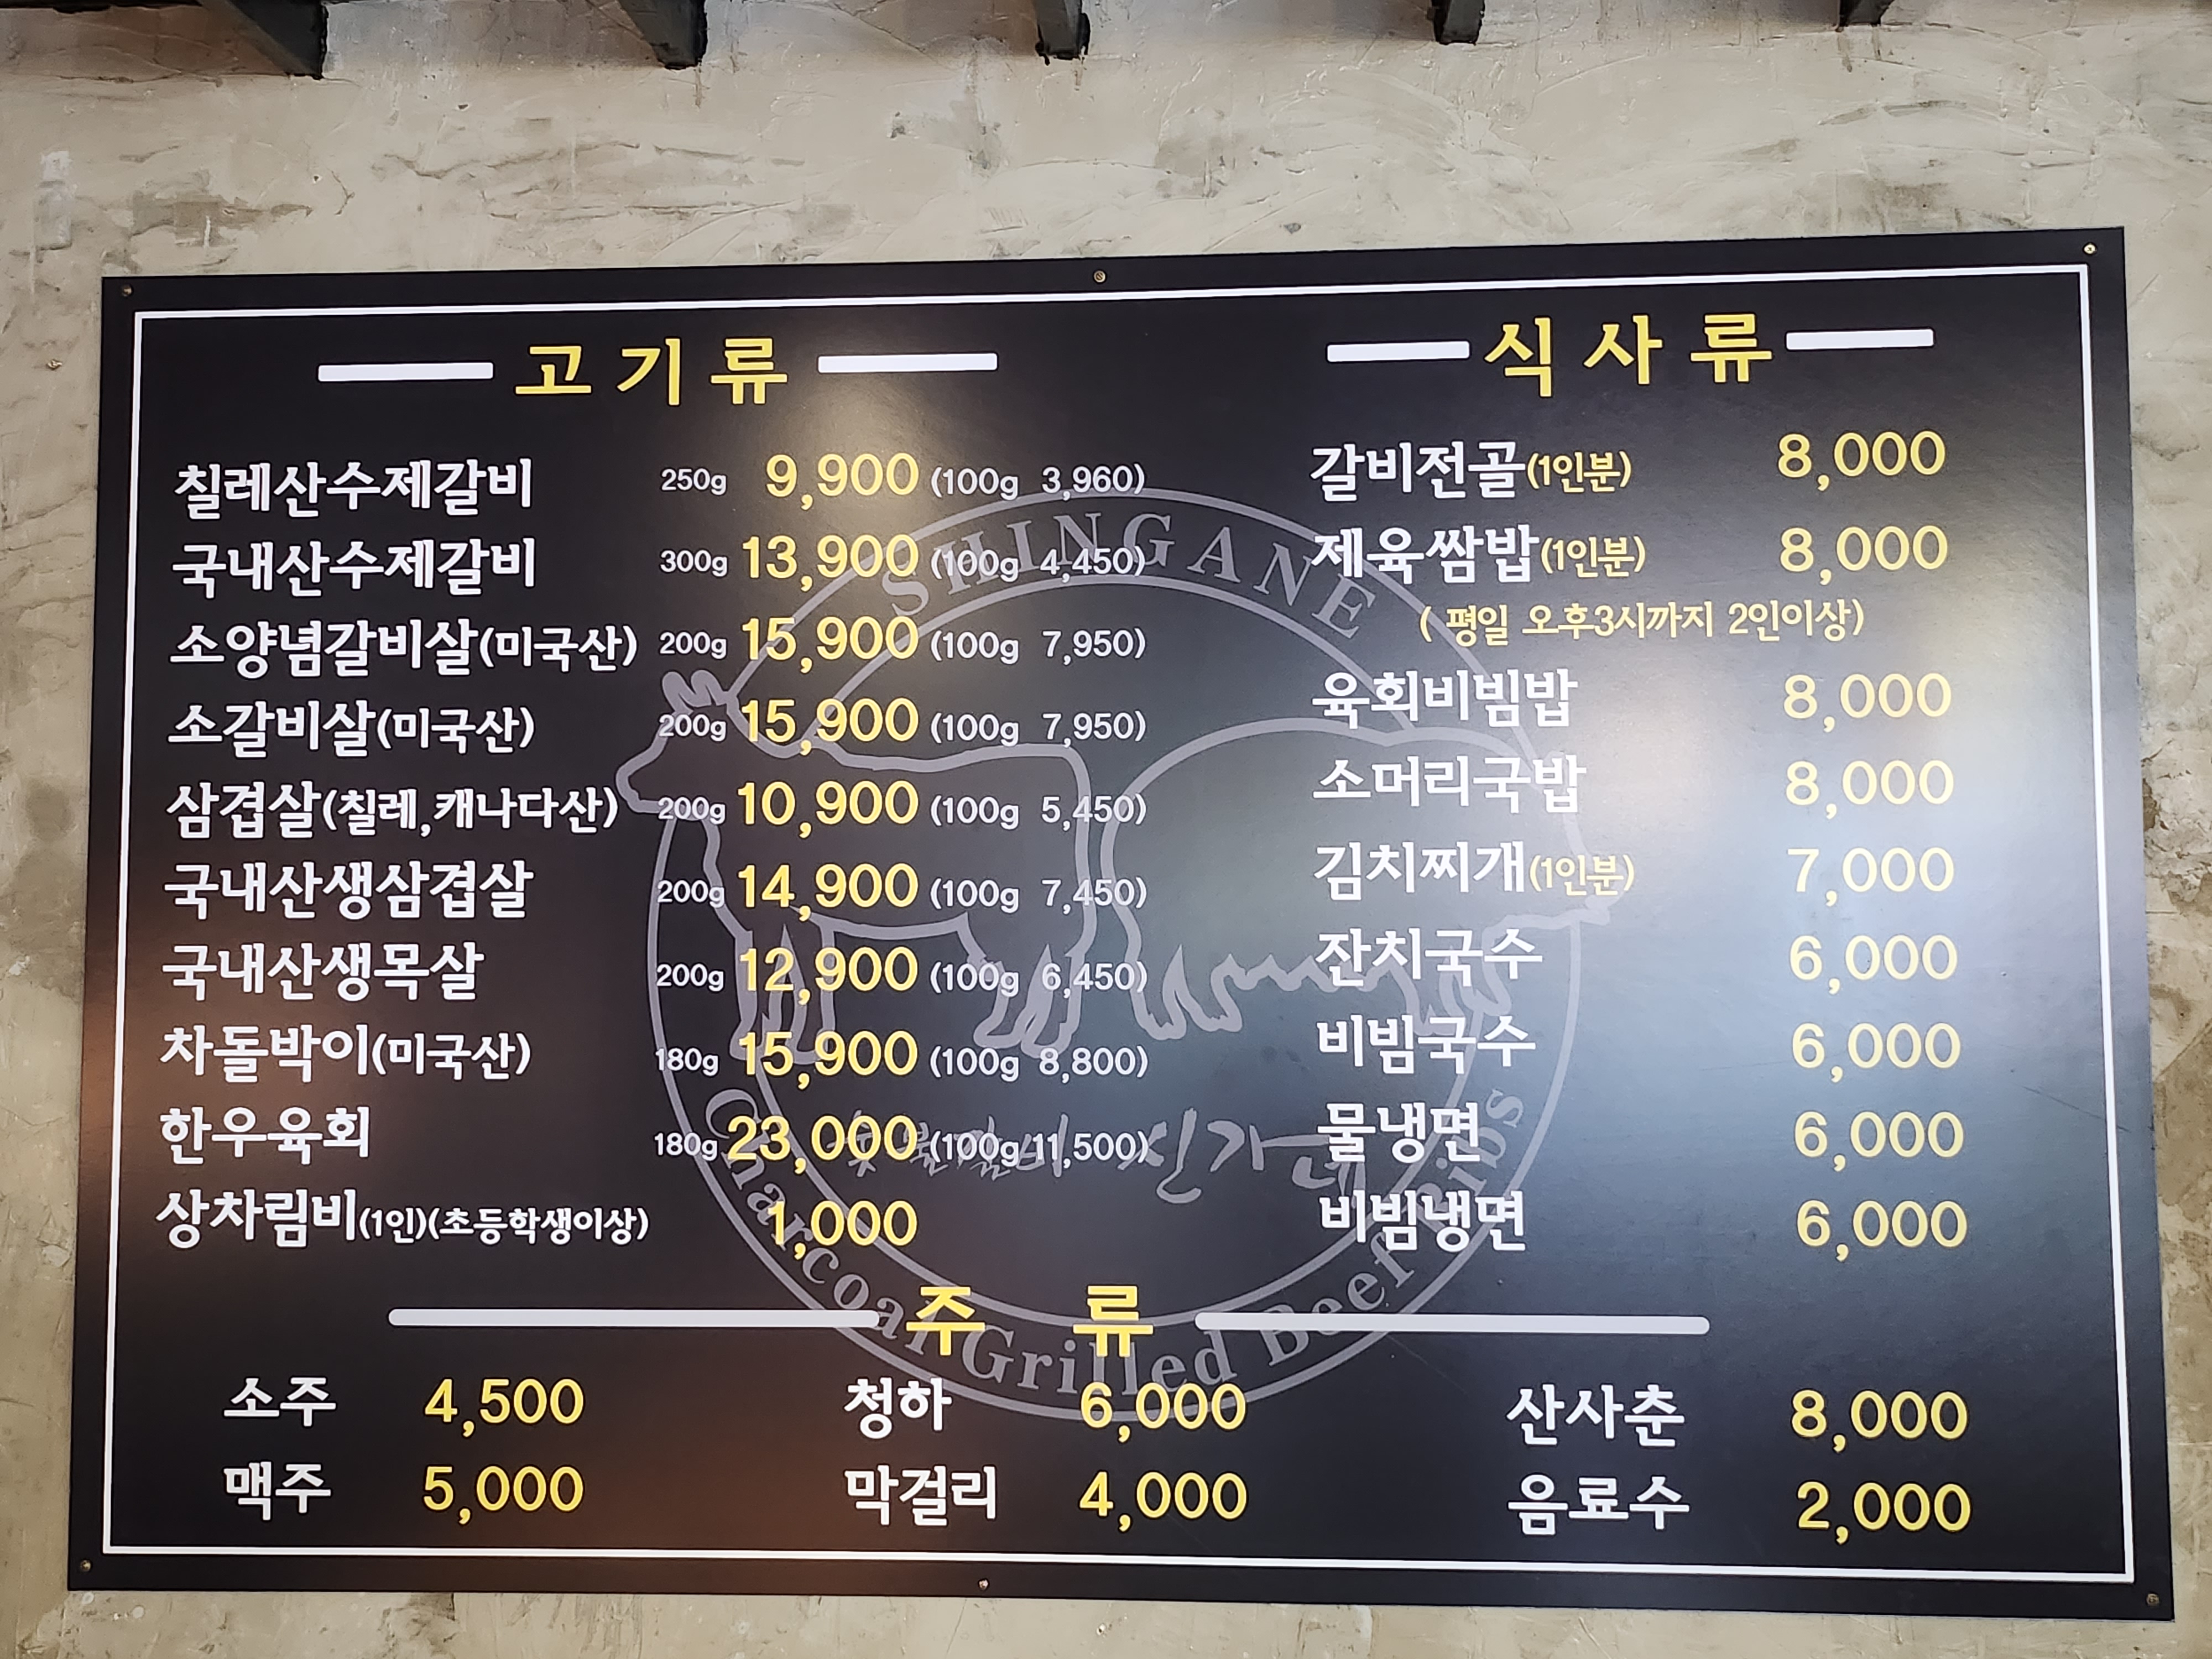 고기류
칠레산수제갈비 250g 9,900 (100g 3,960)
국내산수제갈비 300g 13,900 (100g 4,450)
소양념갈비살(미국산) 200g 15,900 (100g 7,950)
소갈비살(미국산) 200g 15,900 (100g 7,950)
삼겹살(칠레,캐나다산) 200g 10,900 (100g 5,450)
국내산생삼겹살 200g 14,900 (100g 7,450)
국내산생목살 200g 12,900 (100g 6,450)
차돌박이(미국산) 180g 15,900 (100g 8,800)
한우육회 180g 23,000 (100g 11,500)
상차림비(1인)(초등학생이상) 1,000
식사류
갈비전골(1인분) 8,000
제육쌈밥(1인분) 8,000
( 평일 오후3시까지 2인이상)
육회비빔밥 8,000
소머리국밥 8,000
김치찌개(1인분) 7,000
잔치국수 6,000
비빔국수 6,000
물냉면 6,000
비빔냉면 6,000
SHINGANE
숯불갈비 신가네
Charcoal Grilled Beef Ribs
주 류
소주 4,500 청하 6,000 산사춘 8,000
맥주 5,000 막걸리 4,000 음료수 2,000